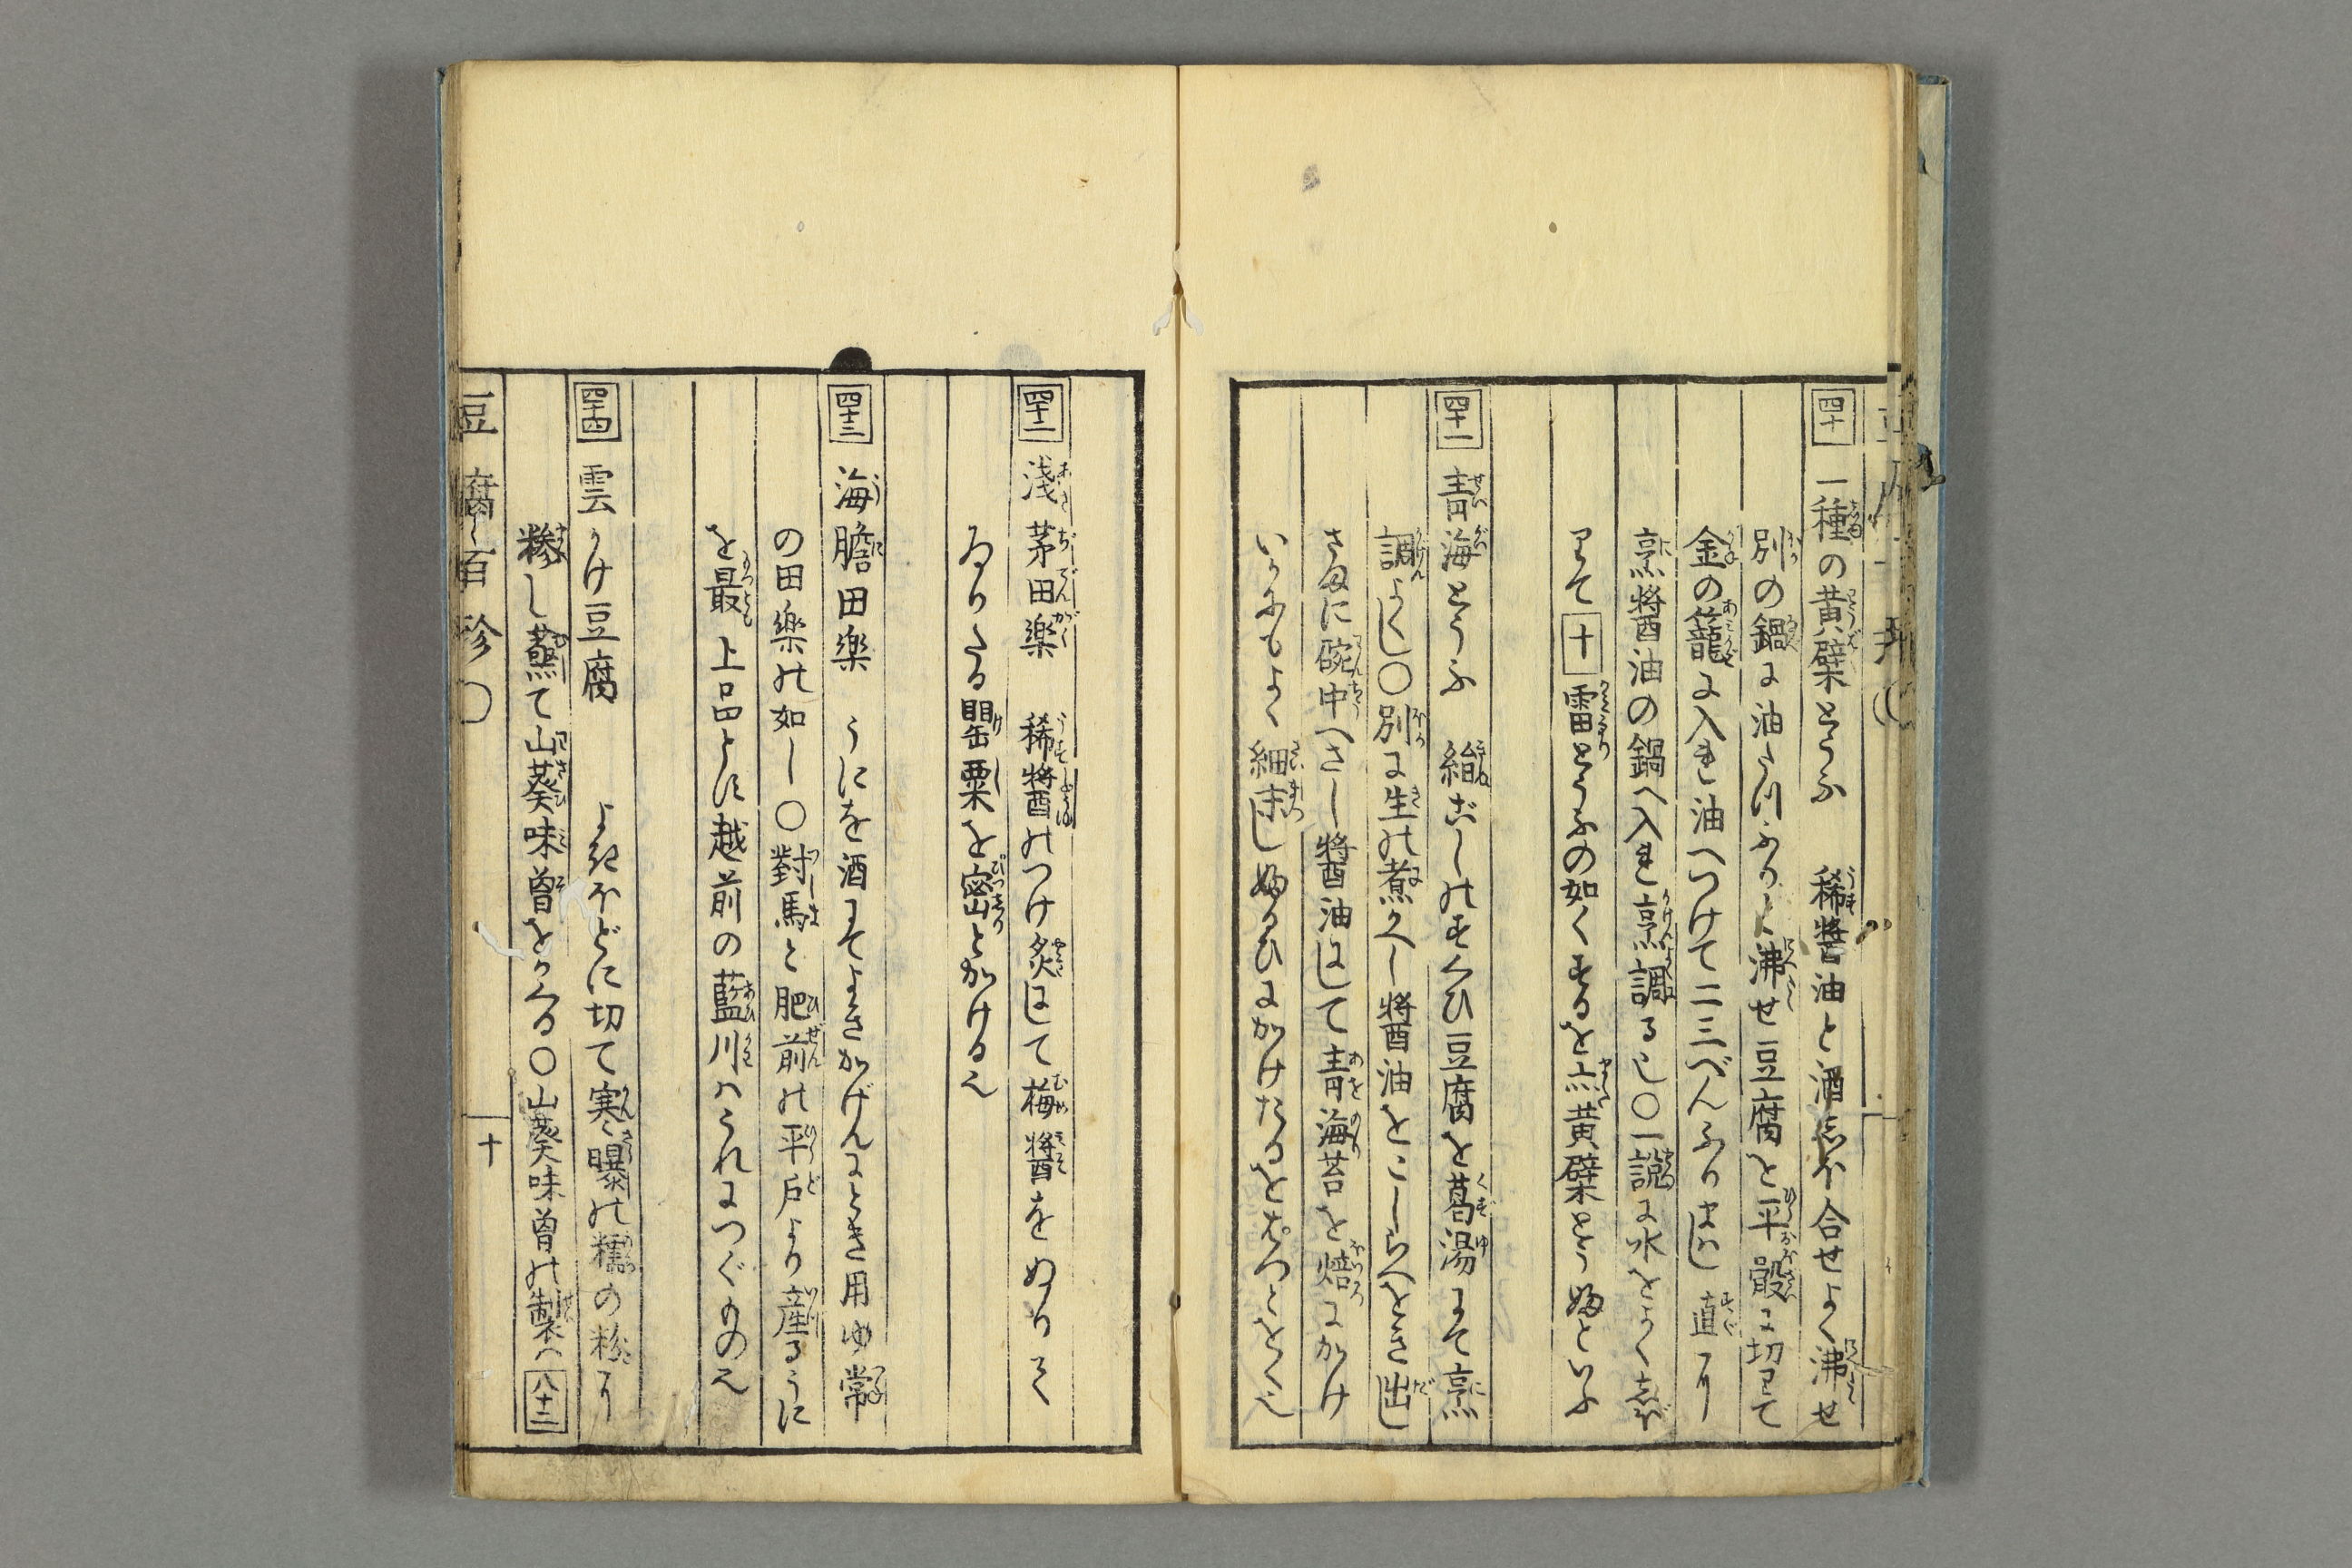 四十 一種の黄檗とうふ 稀醬油と酒しほ合せよく沸せ
別の鍋に油たつぷりと沸せ豆腐を平骰に切りて
金の籠に入れ油へつけて二三べんふりまはし直に
烹醬油の鍋へ入れ烹調る也〇一説に水をよくしぼ
りて 十 雷とうふの如くするを黄檗とうふといふ
四十一 青海とうふ 絹ごしのすくひ豆腐を葛湯にて烹
調よくし〇別に生の煮かへし醬油をこしらへをき出し
さまに碗中へさし醬油にして青海苔を焙にかけ
いかにもよく細末しふるひにかけたるをぱつとをく也
四十二 浅茅田楽 稀醬のつけ炙にして梅醬をぬりて
ゐりたる罌粟を密とかける也
四十三 海膽田楽 うにを酒にてよきかげんにとき用ゆ常
の田楽の如し〇對馬と肥前の平戸より産るうに
を最上品とす越前の藍川はこれにつぐもの也
四十四 雲かけ豆腐 よきほどに切て寒曝の糯の粉に
糝し蒸て山葵味曾をかくる〇山葵味曾の製ハ 八十二
豆腐百珍〇
十